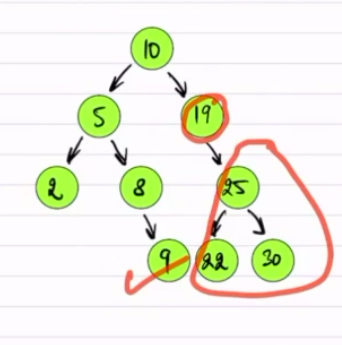 10
5 19
2 8 25
9 22 30